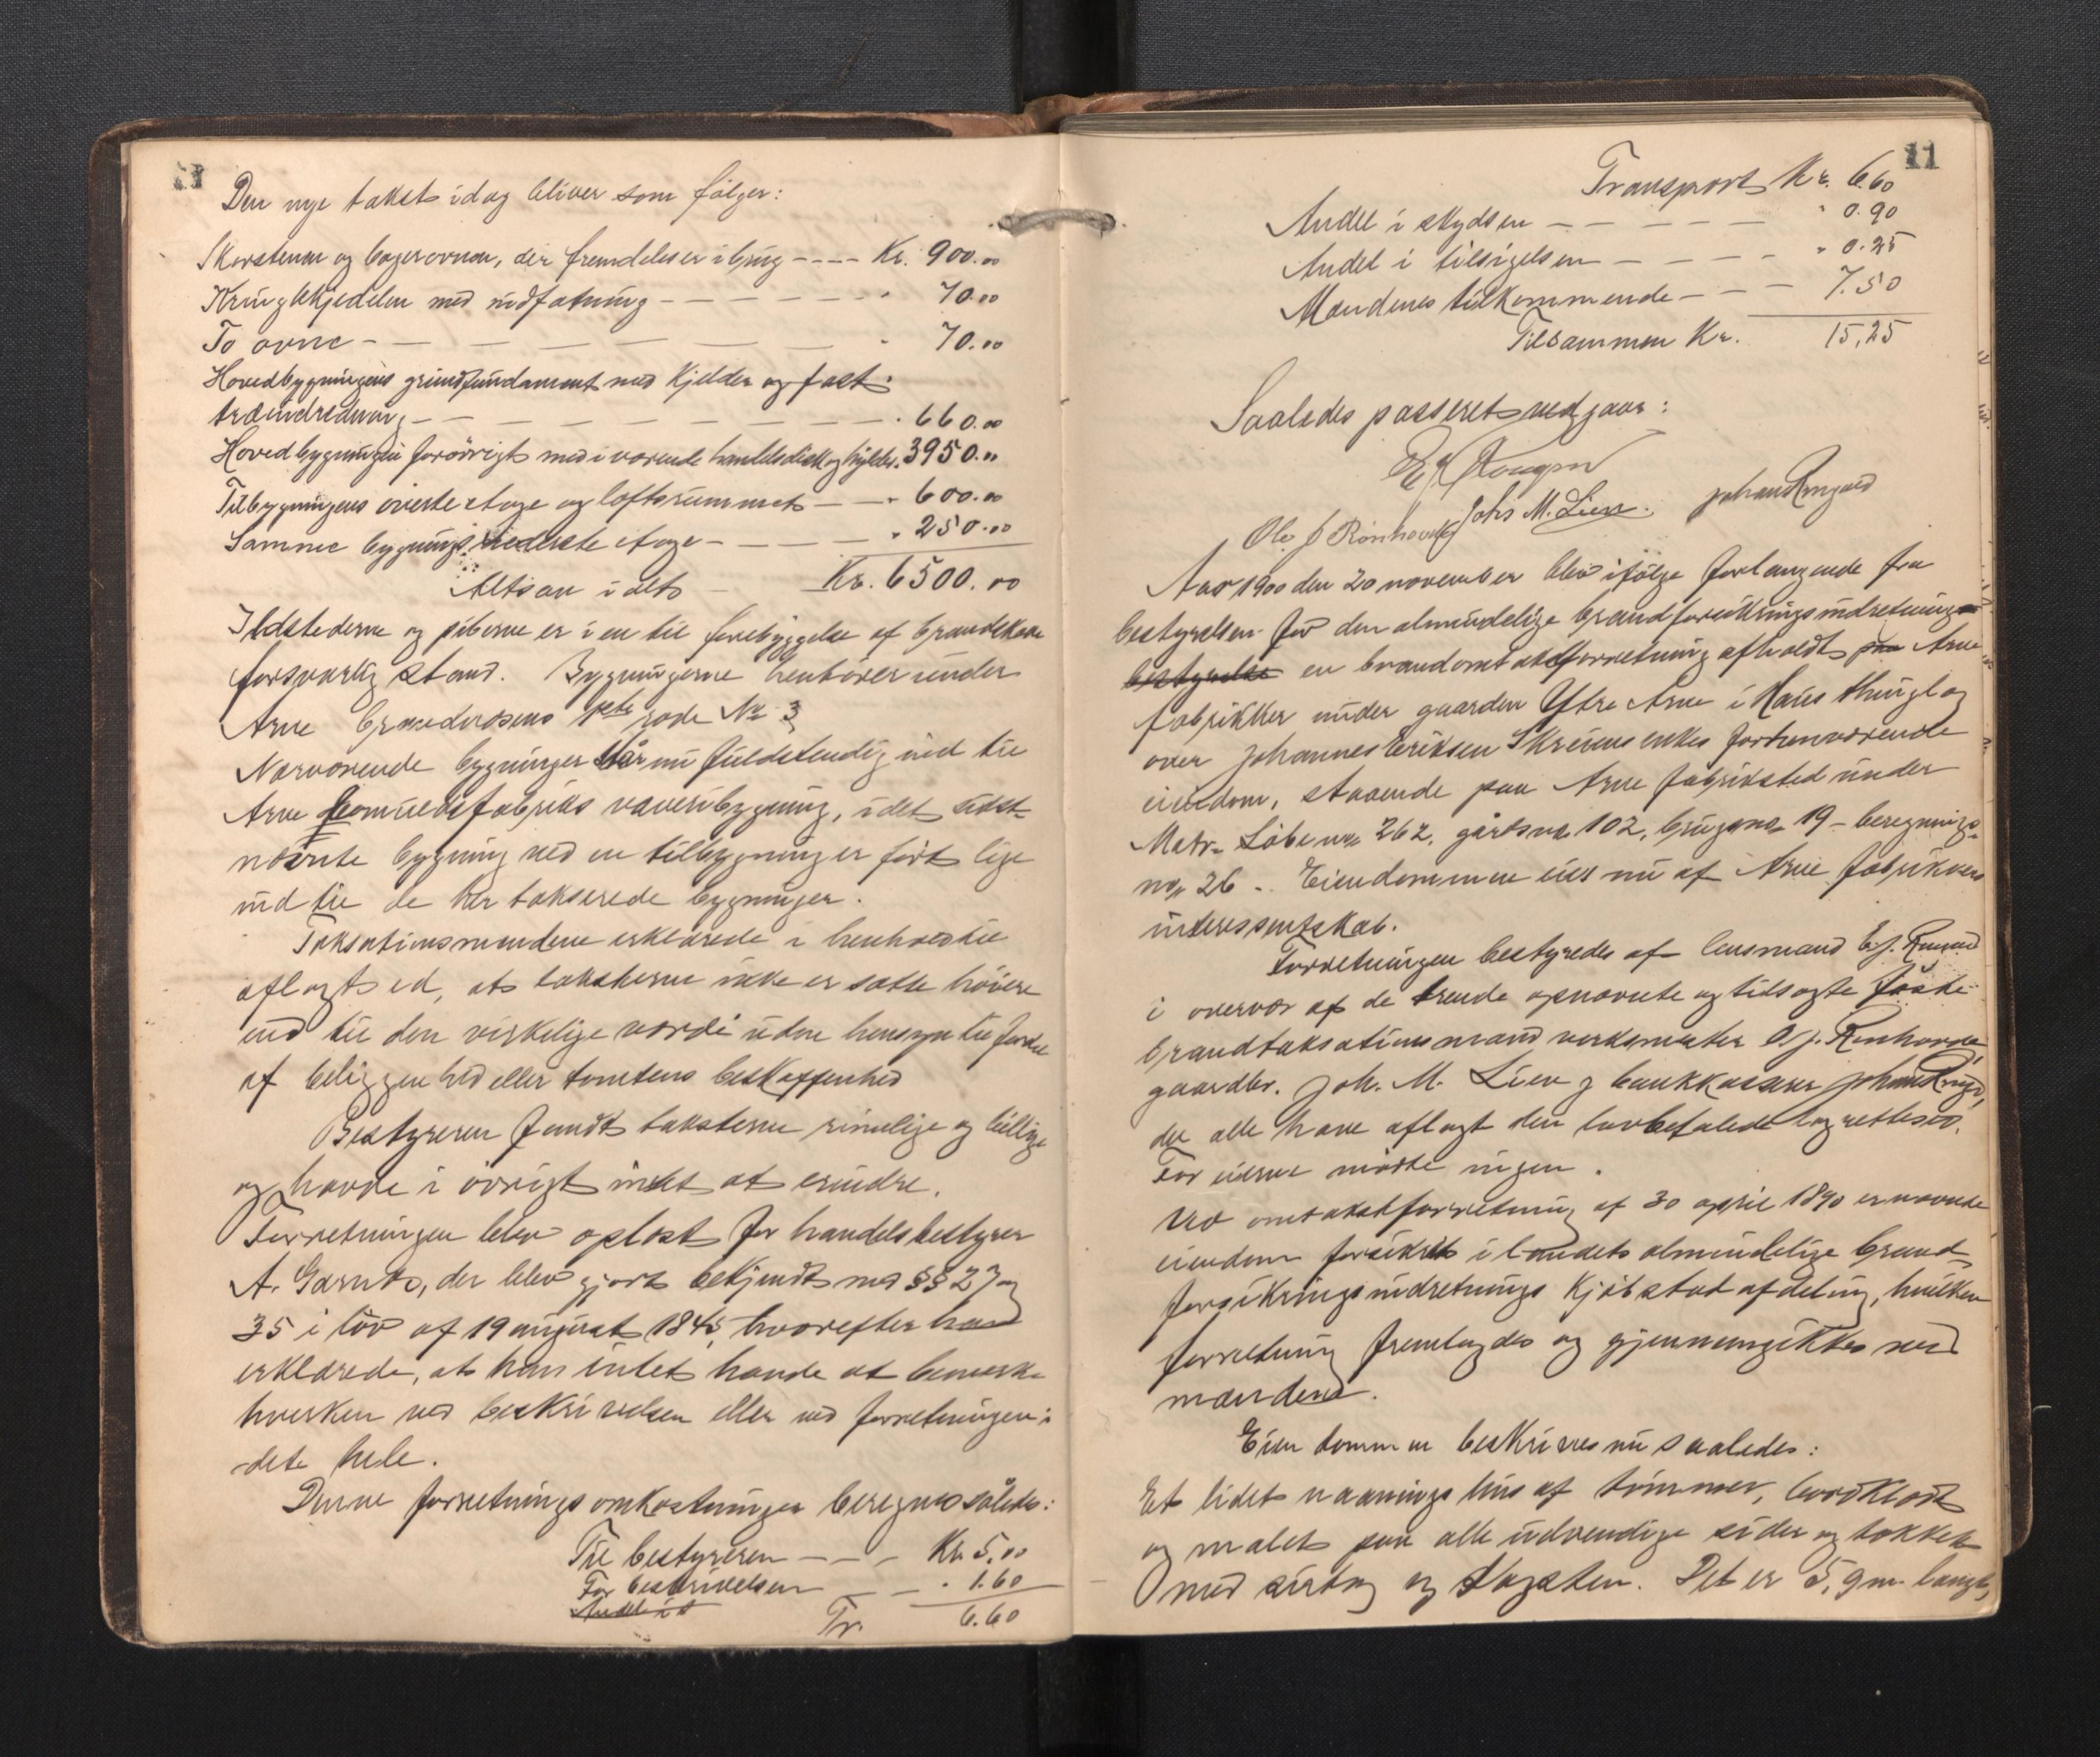 Den nye takst idag bliver som følger:
Skorstenen og bagerovnen, der fremdeles er i brug ---- Kr. 900.00
Kringlekjedelen med indfatning - - - - - - " 70.00
To ovne - - - - - - - " 70.00
Hovedbygningens grundfundament med kjelder og fast
træindredning - - - - - - - " 660.00
Hovedbygningen forøvrigt med iværende handelsdisk og hylder " 3950.00
Tilbygningens øverste etage og loftsrummet - - " 600.00
Samme bygnings nederste etage - - - - " 250.00
Altsaa ialt - Kr. 6500.00
Ildstederne og piberne er i en til forebyggelse af brandskade
forsvarlig stand. Bygningerne henhører under
Arne brandvæsens 1ste rode No 3
Nærværende bygninger står nu fuldstendig ind til
Arne bomuldsfabriks væveribygning, idet sidst-
nævnte bygning ved en tilbygning er ført lige
ind til de her takserede bygninger.
Taksationsmendene erklærede i henhold til
aflagt ed, at taksterne ikke er satte høiere
end til den virkelige værdi uden hensyn til fordel
af beliggenhed eller tomtens beskaffenhed
Bestyreren fandt taksterne rimelige og billige
og havde i øvrigt intet at erindre.
Forretningen blev oplæst for handelsbestyrer
A. Garnes, der blev gjort bekjendt med §§ 27 og
35 i lov af 19 august 1845, hvorefter han
erklærede, at han intet havde at bemerke
hverken ved beskrivelsen eller ved forretningen i
det hele.
Denne forretnings omkostninger beregnes således:
Til bestyreren - - - Kr. 5,00
For beskrivelsen - - " 1.60
Andel i s
Tr. 6.60
11
Transport Kr. 6.60
Andel i skydsen - - - - - " 0.90
Andel i tilsigelsen - - - - " 0.25
Mændenes tilkommende - - - 7.50
Tilsammen Kr. 15,25
Saaledes passeret vedgaar:
Ole J Rønhovde Johs M. Lien. Johan Ringard
Aar 1900 den 20 november blev ifølge forlangende fra
bestyrelsen for den almindelige brandforsikringsindretning
bestyrelse en brandomtakstforretning afholdt paa Arne
fabrikker under gaarden Ytre Arne i Haus thinglag
over Johannes Eriksen Skreiens enkes forhenværende
eiendom, staaende paa Arne fabriksted under
Matr. Løbe no 262, gårdsno 102, brugsno 19 - beregnings-
no 26 -. Eiendommen eies nu af Arne fabrikkers
interessentskab.
Forretningen bestyredes af lensmand
i overvær af de trende opnævnte og tilsagte faste
brandtaksationsmænd verksmester O. J. Rønhovde,
gaardbr. Joh. M. Lien og bankkasserer Johan Ringard,
der alle have aflagt den lovbefalede lagrettesed.
For eierne mødte ingen.
Ved omtakstforretning af 30 april 1890 er nævnte
eiendom forsikret i landets almindelige brand-
forsikringsindretnings kjøbstadafdeling, hvilken
forretning fremlagdes og gjennemgikkes med
mændene.
Eiendommen beskrives nu saaledes:
Et lidet vaaningshus af tømmer, bordklædt
og malet paa alle udvendige sider og tækket
med sutag og tagsten. Det er 5,9 m. langt,